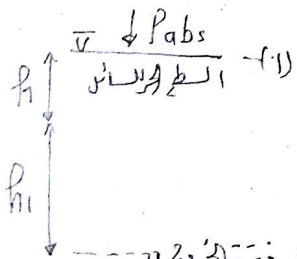 ↓ Pabs
السطح الحر للسائل -(1)
h
h1